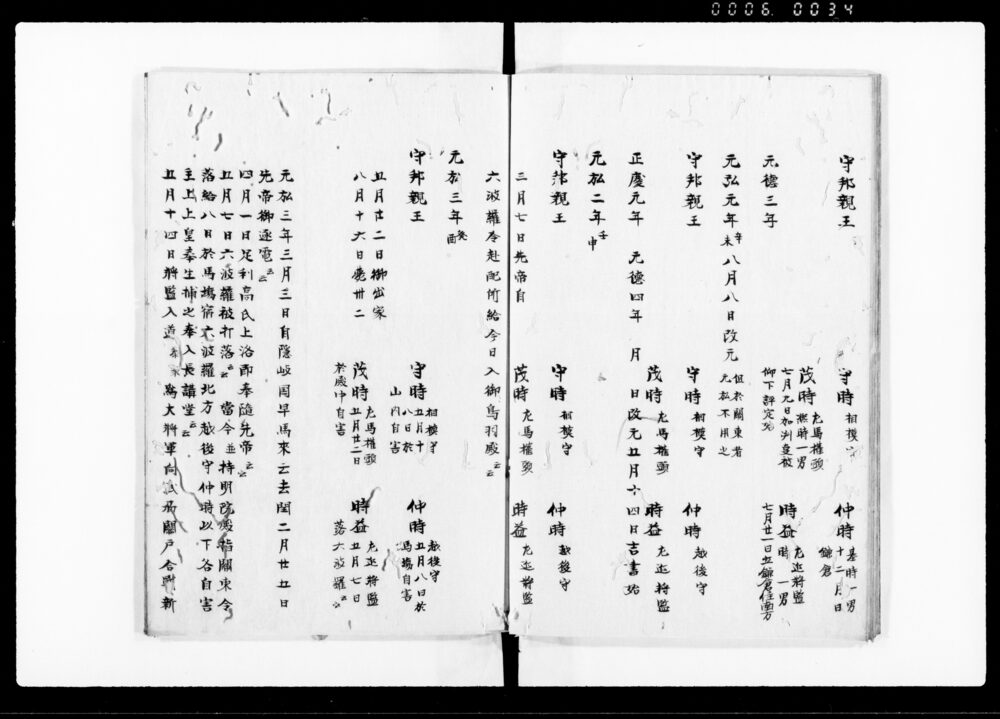 0006 0034
守邦親王　守時 相模守　仲時 基時一男 十二月 日 鎌倉
元德三年　茂時 左馬權頭 凞時一男 七月九日加判並被仰下評定
時益 左近將監 時 一男 七月廿一日立鎌倉住南方
元弘元年 辛未 八月八日改元 但於關東者元弘不用之
守邦親王　守時 相模守　仲時 越後守
茂時 左馬權頭　時益 左近將監
正慶元年　元德四年　月　日改元五月十四日吉書始
元弘二年 壬申
守邦親王　守時 相模守　仲時 越後守
茂時 左馬權頭　時益 左近將監
三月七日先帝自
六波羅令赴配所給今日入御鳥羽殿云云
元弘三年 癸酉
守邦親王　守時 相模守 五月十八日於山內自害　仲時 越後守 五月八日於馬場自害
五月廿二日御出家　茂時 左馬權頭 五月廿二日於殿中自害　時益 左近將監 五月七日落六波羅云云
八月十六日薨卅二
元弘三年三月三日自隱岐國早馬來云去閏二月廿五日
先帝御逐電云云
四月一日足利高氏上洛即奉隨先帝云云
五月七日六波羅被打落云云 當今並持明院殿指關東令
落給八日於馬場宿六波羅北方越後守仲時以下各自害
主上上皇奉生捕之奉入長講堂云云
五月十四日將監入道 為大將軍向武州關戶合戰新